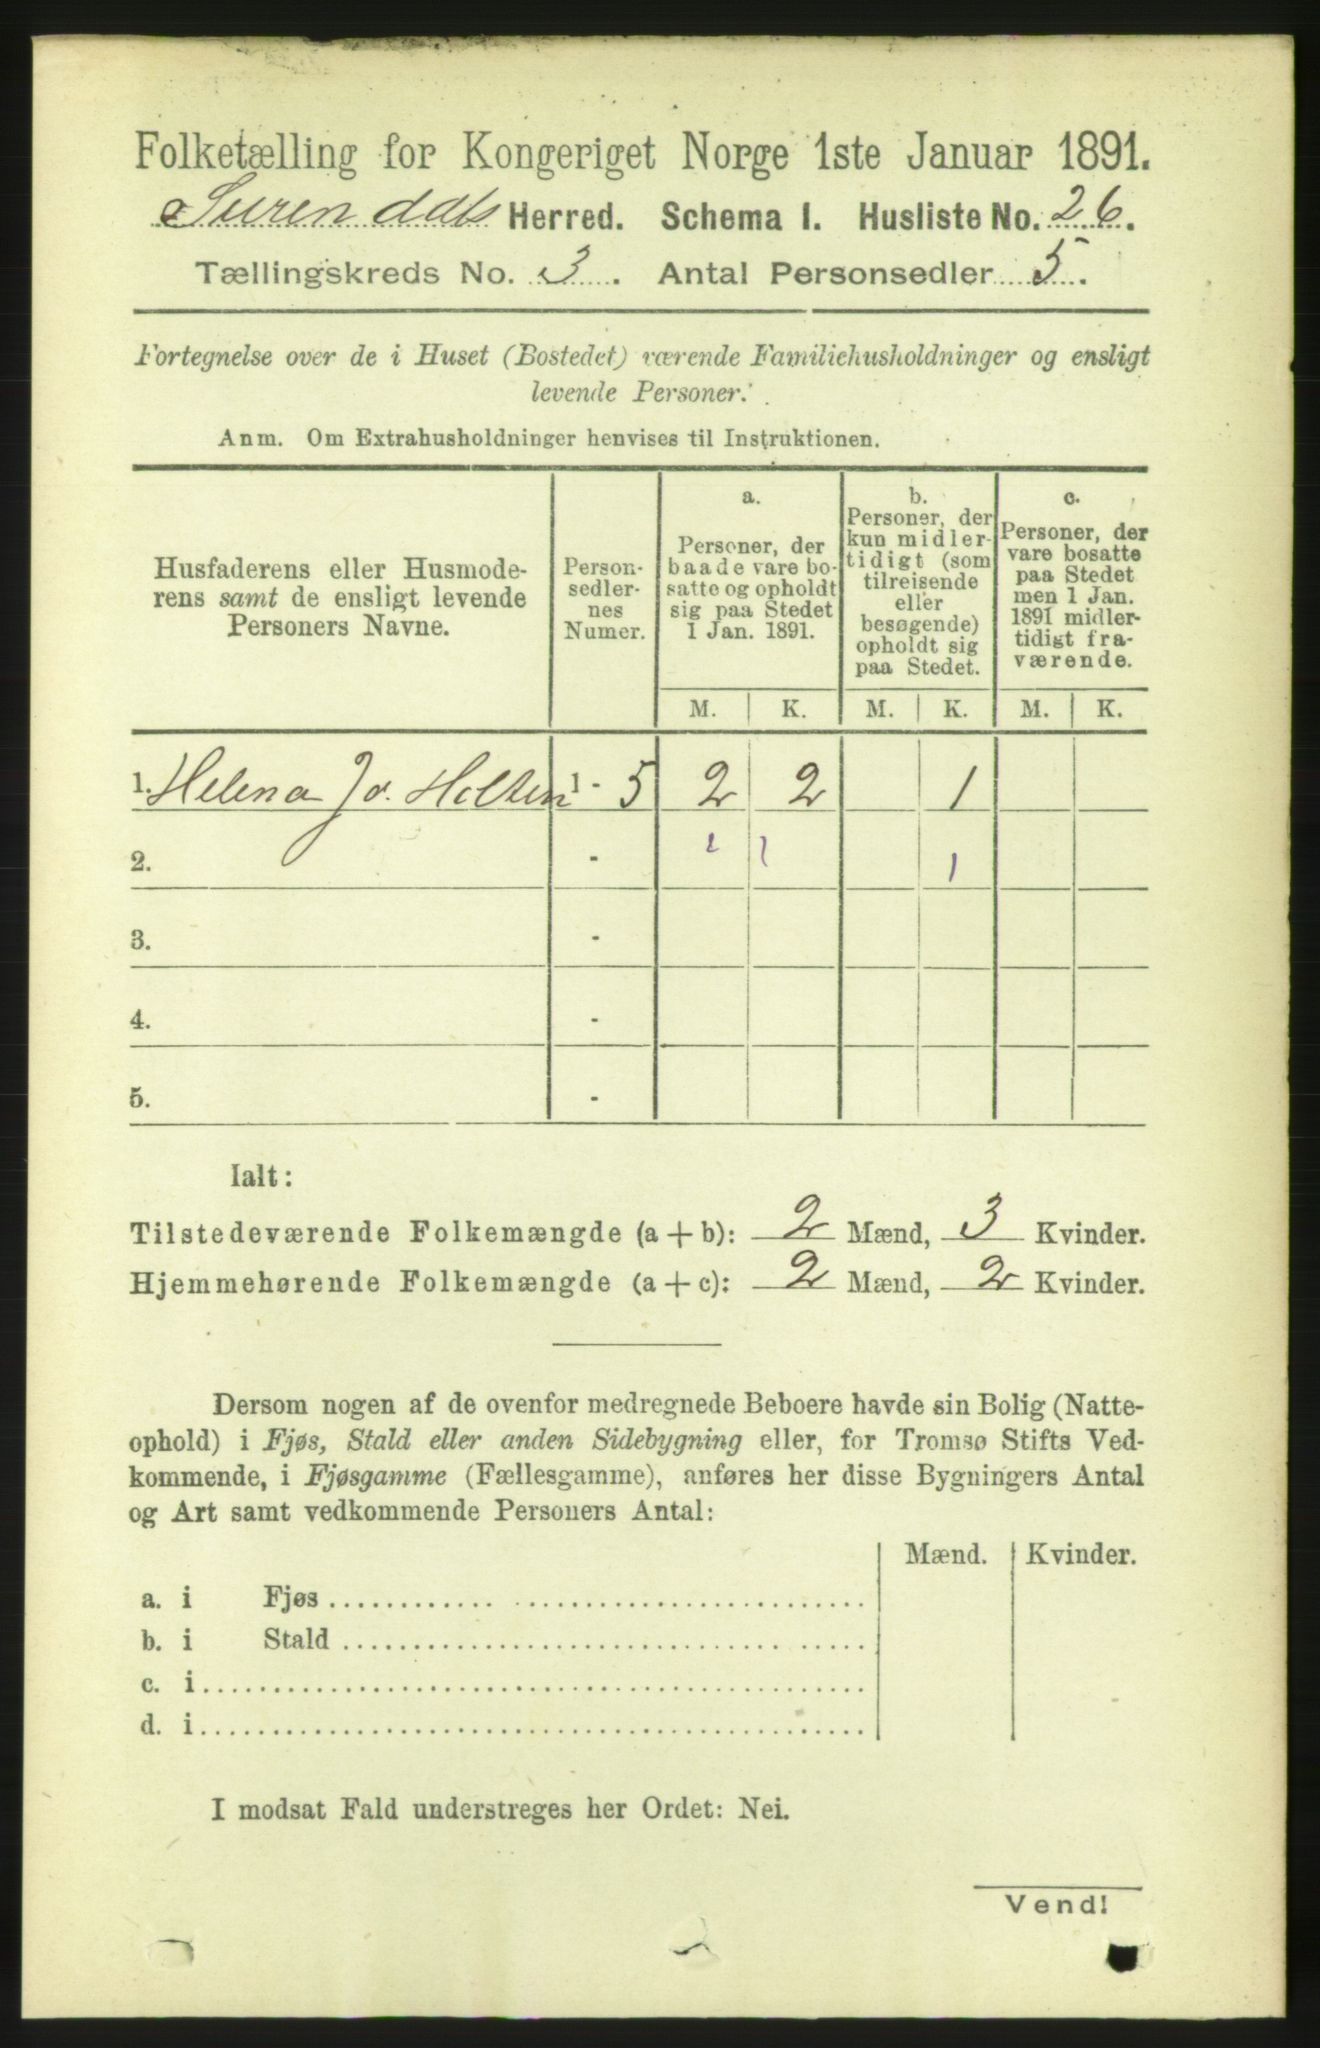 Folketælling for Kongeriget Norge 1ste Januar 1891.
Surendals Herred. Schema I. Husliste No. 26.
Tællingskreds No. 3. Antal Personsedler 5.
Fortegnelse over de i Huset (Bostedet) værende Familiehusholdninger og ensligt
levende Personer.
Anm. Om Extrahusholdninger henvises til Instruktionen.
Husfaderens eller Husmode-
rens samt de ensligt levende
Personers Navne.
Person-
sedler-
nes
Numer.
a.
Personer, der
baade vare bo-
satte og opholdt
sig paa Stedet
1 Jan. 1891.
b.
Personer, der
kun midler-
tidigt (som
tilreisende
eller
besøgende)
opholdt sig
paa Stedet.
c.
Personer, der
vare bosatte
paa Stedet
men 1 Jan.
1891 midler-
tidigt fra-
værende.
M. K. M. K. M. K.
1. Helena Jo. Holten 1 - 5 2 2 1
2. - 1 1 1
3. -
4. -
5. -
Ialt:
Tilstedeværende Folkemængde (a + b): 2 Mænd, 3 Kvinder.
Hjemmehørende Folkemængde (a + c): 2 Mænd, 2 Kvinder.
Dersom nogen af de ovenfor medregnede Beboere havde sin Bolig (Natte-
ophold) i Fjøs, Stald eller anden Sidebygning eller, for Tromsø Stifts Ved-
kommende, i Fjøsgamme (Fællesgamme), anføres her disse Bygningers Antal
og Art samt vedkommende Personers Antal:
Mænd. Kvinder.
a. i Fjøs
b. i Stald
c. i
d. i
I modsat Fald understreges her Ordet: Nei.
Vend!